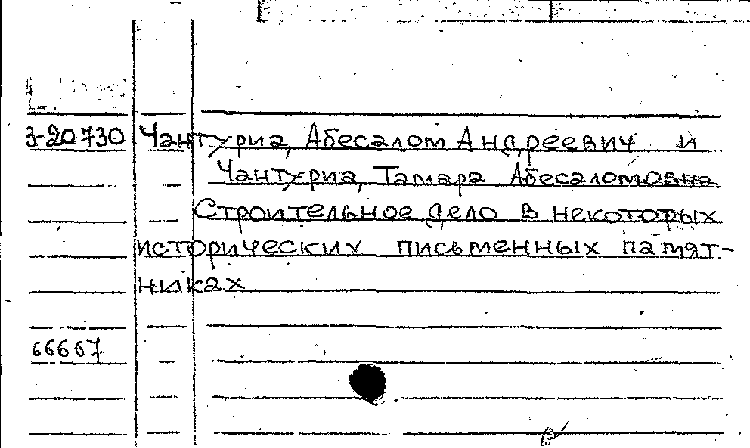 3-20730 Чантуриа, Абесалом Андреевич и
Чантуриа, Тамара Абесаломовна
Строительное дело в некоторых
исторических письменных памят-
никах
66667